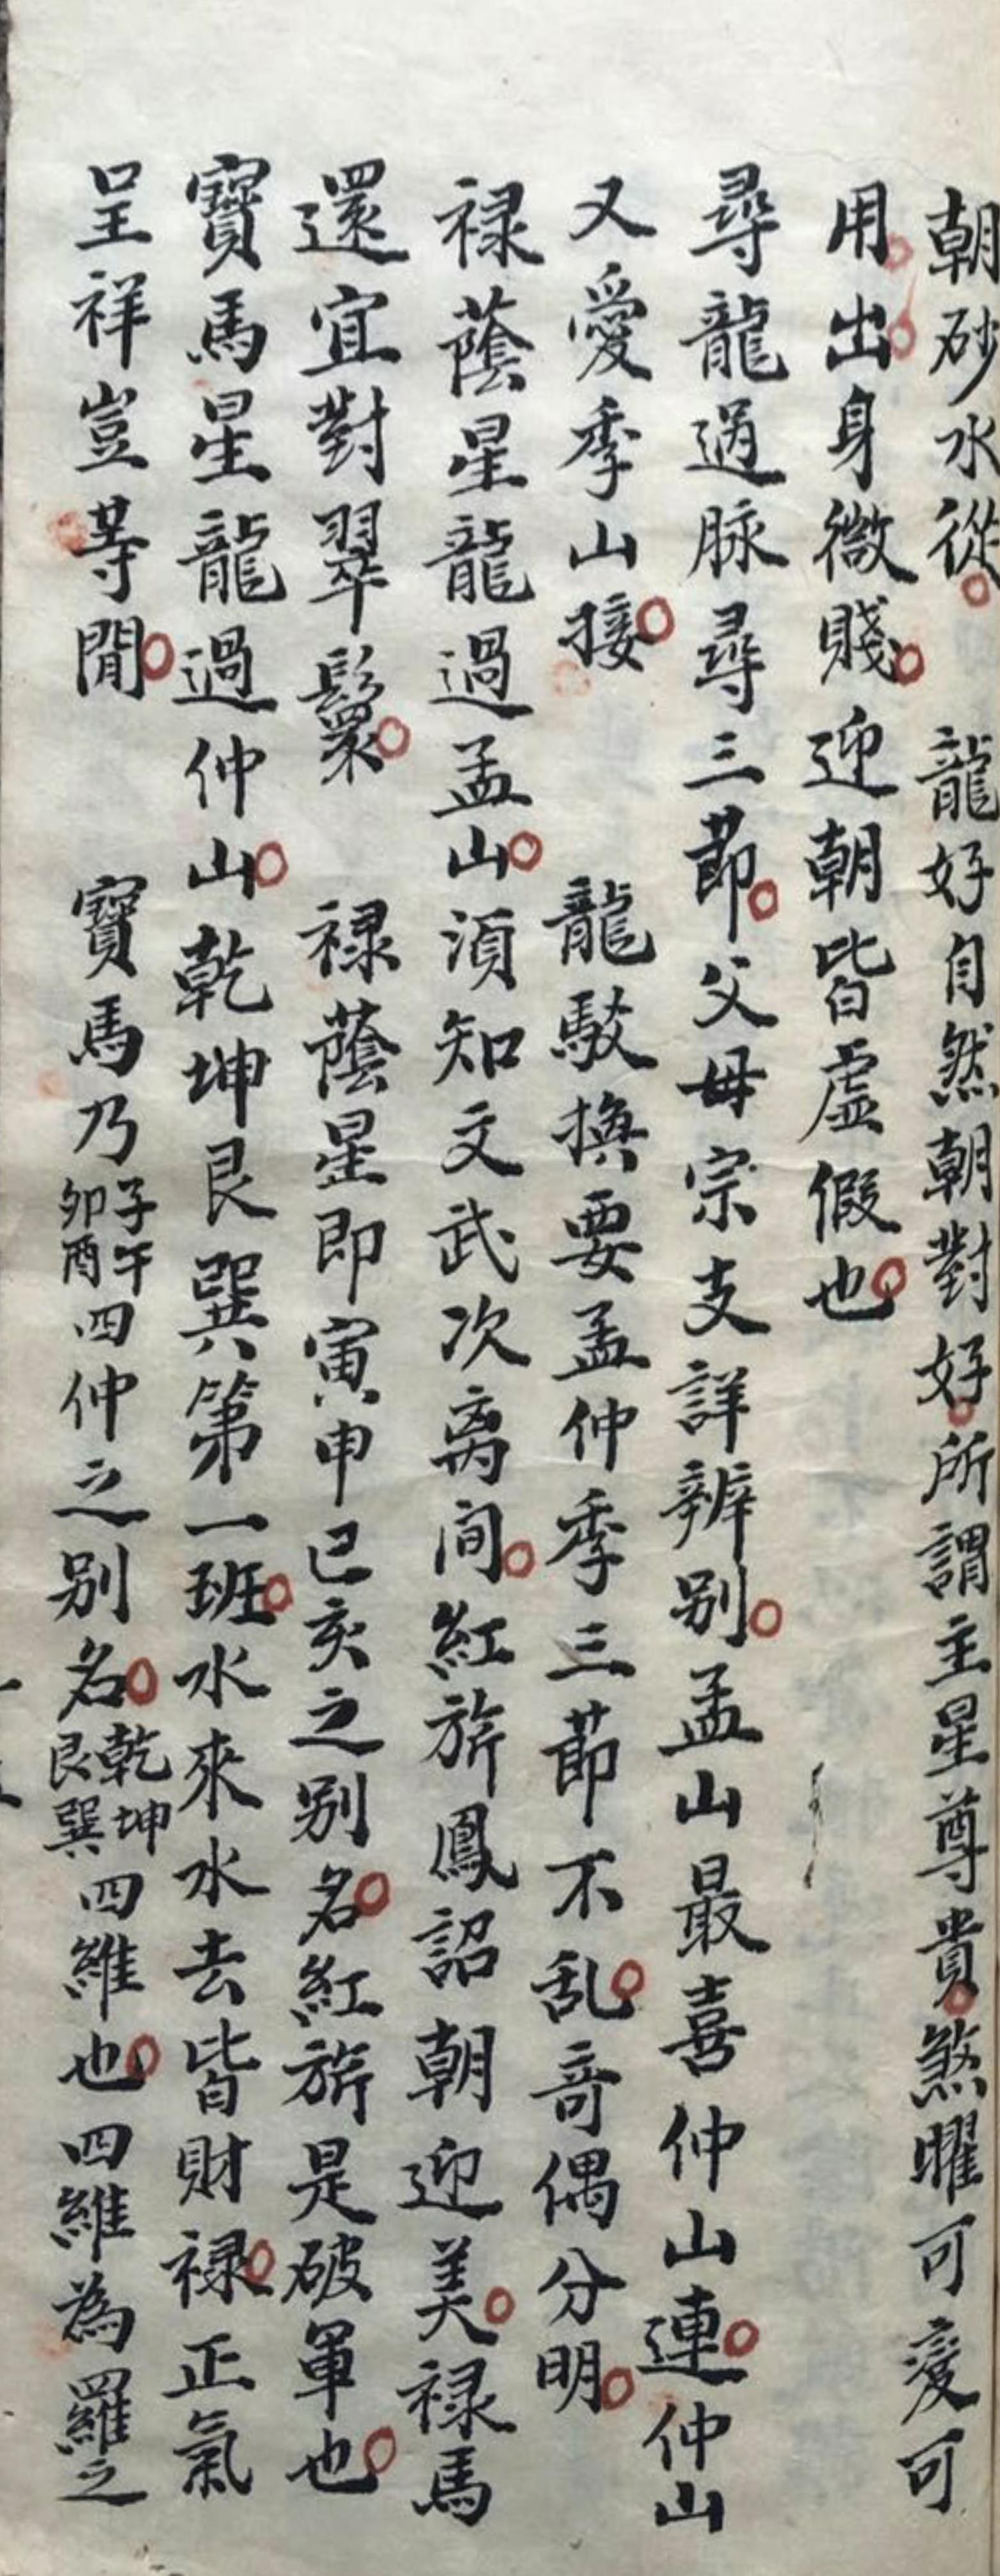 朝砂水從 龍好自然朝對好所謂主星尊貴煞曜可變可
用出身微賤迎朝皆虛假也
尋龍過脉尋三節父母宗支詳辨别孟山最喜仲山連仲山
又愛季山接 龍駁換要孟仲季三節不乱奇偶分明
禄蔭星龍過孟山須知文武次离间紅旂鳳詔朝迎美禄馬
還宜對翠鬟 禄蔭星即寅申巳亥之别名紅旂是破軍也
寶馬星龍過仲山乾坤艮巽第一班水來水去皆財禄正氣
呈祥豈等閒 寶馬乃子午卯酉四仲之别名乾坤艮巽四維也四維為羅之